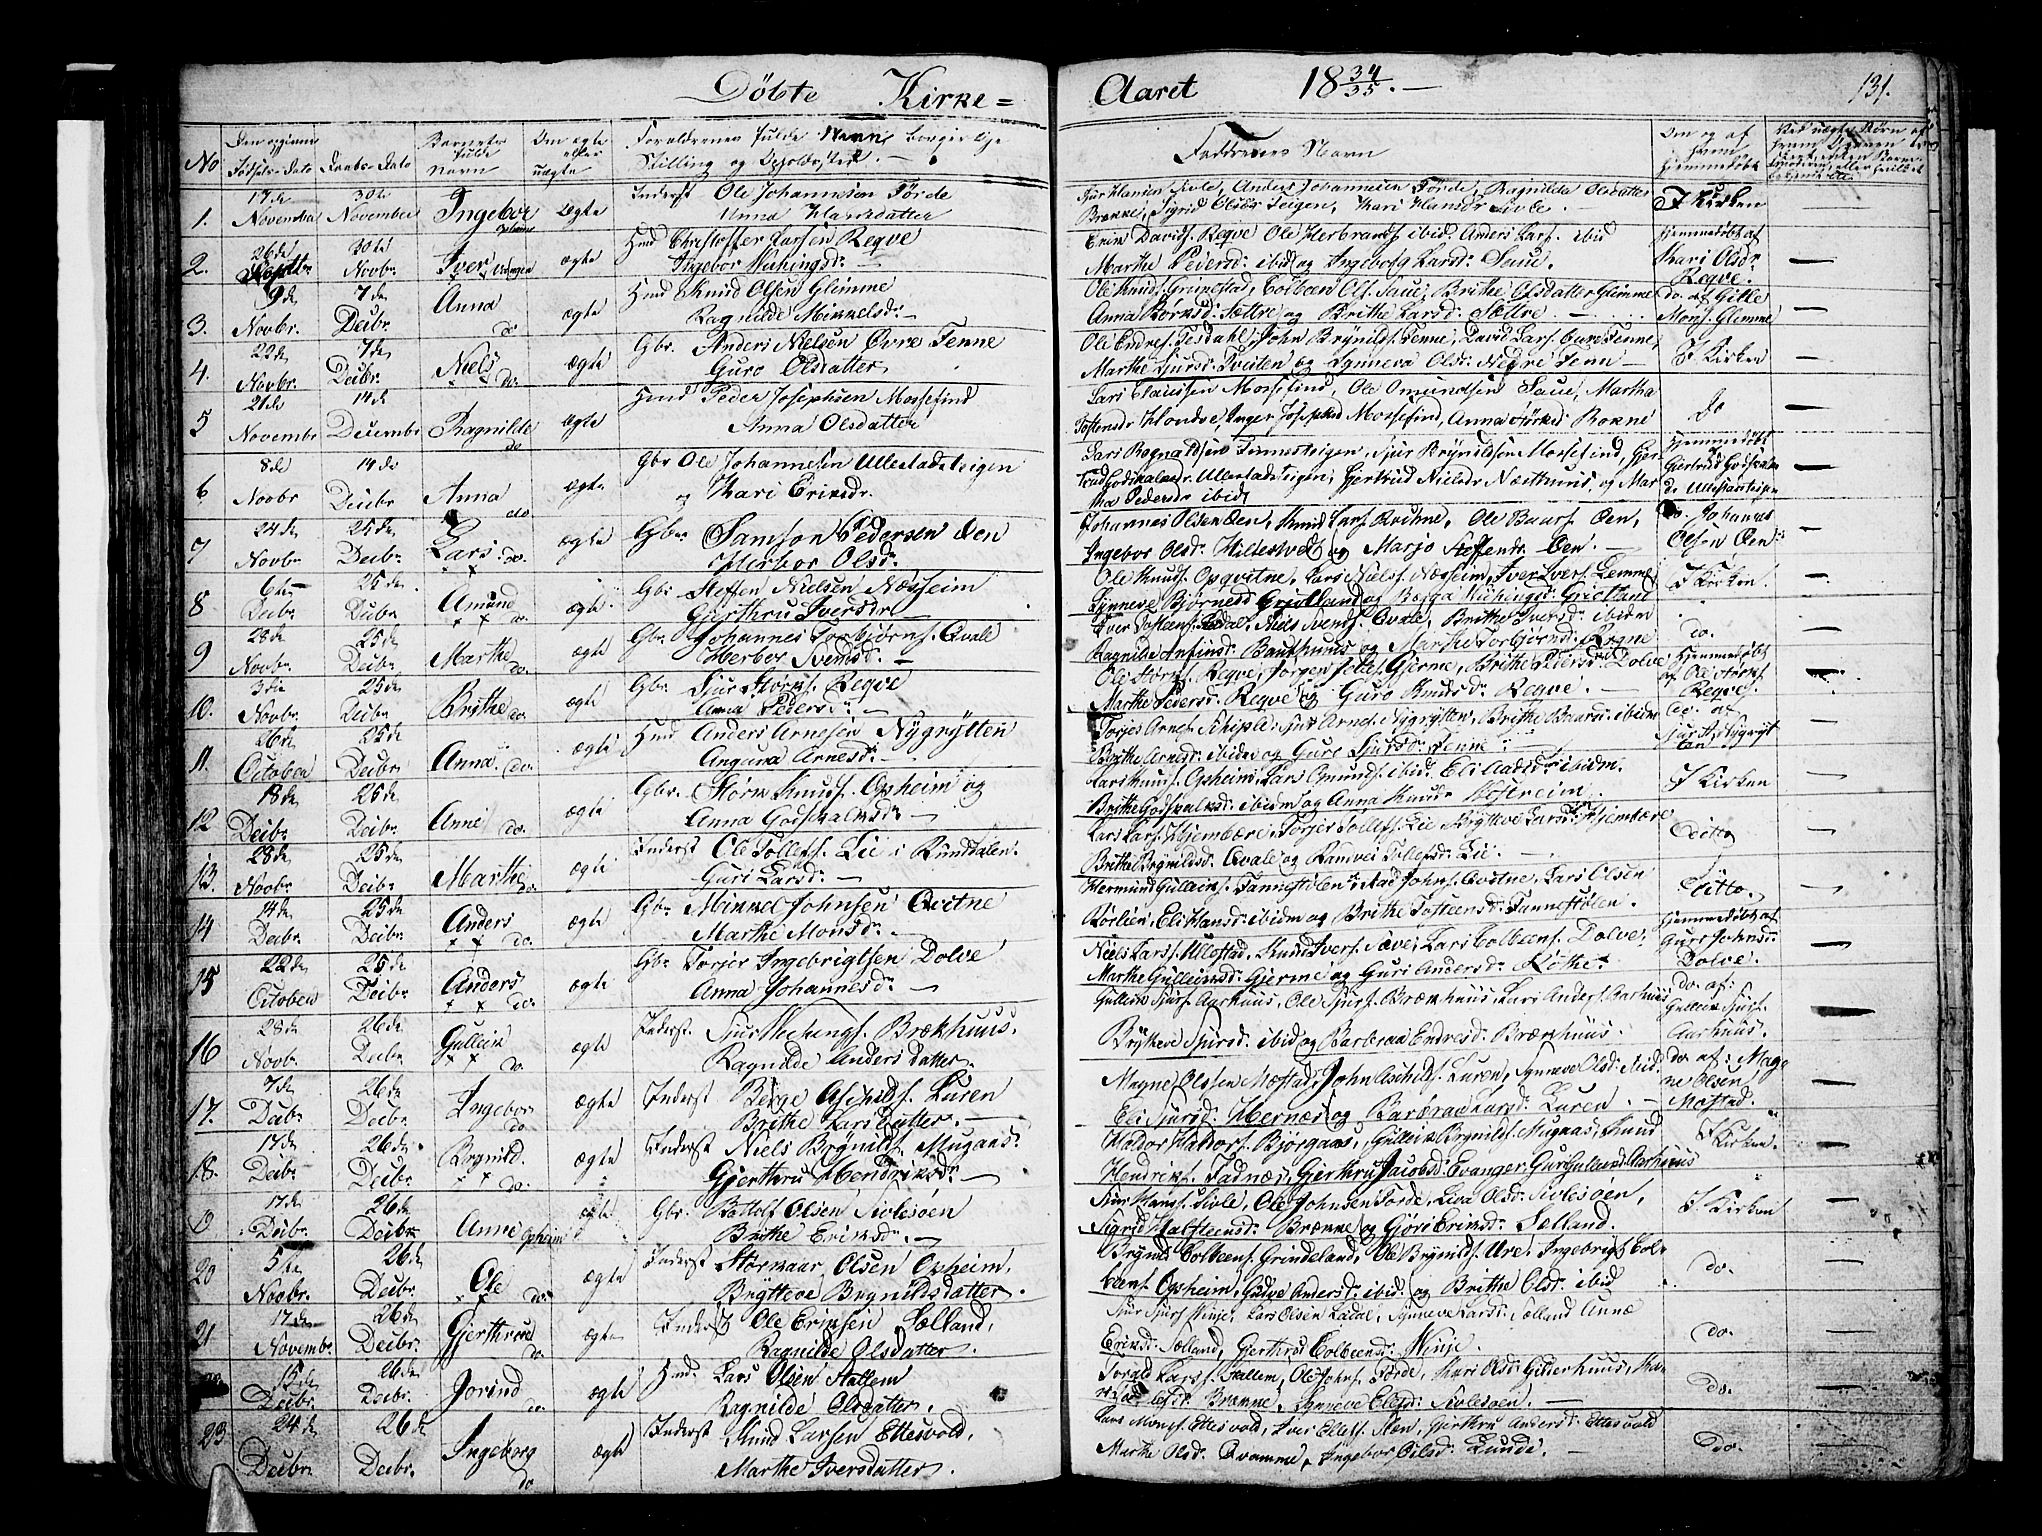 Döbte Kirke= Aaret 18 34/35. — 131.
No
Fødsels-Dato Daabs-Dato
Barnets fulde Navn
Om ægte eller uægte
Forældrenes fulde Navn, borgerlige
Stilling og Opholdsted. —
Faddernes Navn
Om og af hvem hjemmedøbt
1. 17de November 30te November Ingebor ægte Inderst Ole Johannesen Förde
Anna Hansdatter
Sjur Hansen Sivle, Anders Johannesen Förde, Ragnilde Olsdatter
Brække, Sigrid Teigen, Kari Hansdr Sivle.
I Kirken
2. 26de 30te Novbr. Iver ægte Hmd Christoffer Larsen Reqve
Ingebor Wichingsd:
Erik Davids. Reqve Ole Herbrands. ibid. Anders Lars. ibid
Marthe Peders d: ibid og Ingeborg Larsd: Saue.
Hjemmedöbt af
Kari Olsdr
Reqve.
3. 9de Novbr. 7de Decbr. Anna do ægte Hmd Knud Olsen Glimme
Ragnilde Mikkelsd: —
Ole Knuds. Grimestad, Colbein Ols. Saue, Brithe Olsdatter Glimme
Anna Sættre og Brithe Larsd: Sættre.
do. af Gitle
Mons. Glimme
4. 29de Novbr. 7de Decbr. Niels do. ægte Gbr. Anders Nielsen Övre Tenne
Guro Olsdatter
Ole Endres. Tesdahl, John Brynilds. Tenne, David Lars. Övre Tenne,
Marthe Sjursd: Tveiten og Synneva Olsd: Nedre Tenn —
I Kirken
5 21de Novembr 14de Decembr Ragnilde do ægte Hmd Peder Josephsen Mossefind
Anna Olsdatter
Lars Clausen Mossefind, Ole Omundsen Saue, Martha
Tostensdr Hondve, Inger Josephsd Mossefind, Anna Störksd: Rokne
do
6 8de Novbr 14de Decbr Anna do ægte Gbr Ole Johannesen Ullestadsteigen
og Kari Eriksdr.
Lars Ragnaldsen Tennesteigen, Sjur Brynildsen Mossefind, Gjer-
trud Godskalksdr. Ullestadsteigen, Gjertrud Nielsdr Næsthuus, og Mar-
tha Pedersdr ibid
Hjemmedöbt
Gjertrud Godskalks
dr Ullestadsteigen
7 24de Novbr 25de Decbr Lars do. ægte Gbr. Samson Pedersen Öen
Herbor Olsd:
Johannes Olsen Öen, Knud Lars. Rokne, Ole Baars. Öen,
Ingebor Olsd: Hildestvedt og Marjo Steffensdr Öen. —
do. Johannes
Olsen Öen:
8 6te Decbr 25de Decbr. Amund do. ægte Gbr Steffen Nielsen Næsheim
Gjerthru Iversdr —
Ole Knuds. Opqvitne, Lars Niels. Næsheim, Iver Ivers. Lemme,
Synneve Björnesd Gridland og Wichingsd: Gridland
I Kirken.
9 28de Novbr. 25de Decbr. Marthe do. ægte Gbr. Johannes Torbjörns. Qvale
Herbor Svends d. —
Iver Tosteens. Ladal, Niels Svends. Qvale, Brithe Iversd: ibidem
Ragnilde Anfinsd: Baukhuus og Marthe Torbjörnsd: Rogne
do.
10. 3die Novbr. 25de Decbr. Brithe do. ægte Gbr. Sjur Störks. Reqve
Anna Peders d: —
Ole Störks. Reqve, Torgeir Gjerme, Brithe Peders d: Dolve
Marthe Pedersd: Reqve og Guro Knuds d: Reqve. —
Hjemmedöbt
af Ole Störks.
Reqve.
11. 26de October 25de Decbr. Anna do. ægte Hmd Anders Arnesen Nygrytten
Anguna Arnesd: —
Torjes Arnes. Skiple, Sjur Arnes. Nygrytten, Brithe Baarsd: ibidm
Brithe Arnesd: ibidm og Guro Sjursd: Tenne. —
do. af
Sjur A. Nygryt
ten
12 18de Decbr. 25de Decbr. Anne do. ægte Gbr. Störk Knuds. Opheim og
Anna Godskalksd: —
Lars Knuds. Opheim, Lars Omunds. ibid. Eli Aadsd: ibidm.
Brithe Godskalksd: ibidm og Anna Knudsd: Röstheim.
I Kirken
13. 28de Novbr. 25de Decbr. Marthe do. ægte Inderst Ole Tollefs. Lie i Rundalen.
Guri Larsd: —
Lars Lars. Hjembære, Torjer Tollefs. Lie Brytteve Larsd: Hjembære
Brithe Brynildsd: Qvale og Ranvei Tollefsd: Lie.
ditto
14 14de Decbr. 25de Decbr. Anders do. ægte Gbr. Mikkel Johnsen Qvitne
Marthe Monsd: —
Hermund Gulleiks. Fannestölen, Aad Johns. Qvitne, Lars Olsen
Rörlien, Eli Hansd: ibidm og Brithe Tosteensd: Fannestölen.
ditto.
15 22de October 25de Decbr. Anders do. ægte Gbr Torjer Ingebrigtsen Dolve
Anna Johannesd: —
Niels Lars. Ullestad, Knud Ivers. Sæve, Lars Colbeens. Dolve.
Marthe Gulleiksd: Gjerme og Guri Andersd: Röthe.
Hjemmedöbt af
Guro Johnsd:
Dolve.
16 28de Novbr. 26de Decbr. Gulleik do. ægte Inderst. Sjur Wichings. Brækhuus.
Ragnilde Anders datter.
Gulleik Sjurs. Aarhuus, Ole Sjurs. Brækhuus, Lars Anders. Aarhuus,
Brytteve Sjursd: ibid og Barbraa Endresd: Brækhuus.
do. af:
Gulleik Sjurs.
Aarhuus.
17. 7de Decbr. 26de Decbr. Ingebor do ægte Inderst Börge Aschilds. Luren
Brithe Larsdatter. —
Magne Olssen Mæstad, John Aschilds. Luren, Synneve Olsd: ibid.
Eli Sjursd: Hernæs og Barbraa Larsd: Luren. —
do. af: Mag-
ne Olsen
Mæstad.
18. 17de Decbr. 26de Decbr. Brynild. do. ægte Inderst Niels Brynilds. Mugaas:
Gjerthru Hendriksd: —
Haldor Haldors. Björgaas, Gulleik Brynilds. Mugaas, Knud
Hendriks. Fadnæs, Gjerthru Jacobsd: Evanger, Guro Gulleiksd. Aarhuus
I Kirken.
19 17de Decbr. 26de Decbr Anne Opheim ægte Gbr. Botolf Olsen Sivlesöen
Brithe Eriksd: —
Sjur Hans. Sivle, Ole Johnsen Förde, Liva Olsd: Sivlesöen,
Sigrid Halsteensd: Brække og Gjöri Eriksd: Sælland.
I Kirken
20 5te Novbr. 26de Decbr. Ole do. ægte Inderst Störkaar Olsen Opheim.
Brytteve Brynildsdatter.
Brynild Colbeens. Grindeland, Ole Brynilds. Ure, Ingebrigt Col-
beens. Opheim, Andersd: ibid. og Brithe Olsd: ibid
do.
21. 17de Novembr. 26de Decbr. Gjerthrud do ægte Inderst Ole Eriksen Sælland,
Ragnilde Olsdatter.
Sjur Sjurs. Winje, Lars Olsen Ladal, Synneve Larsd: Sælland Annæ
Eriksd: Sælland, Gjerthrud Colbeensd: Winje.
do.
15de Decbr. 26de Decbr. Jorind do. ægte Hmd. Lars Olsen Hallem
Ragnilde Olsdatter.
Torald Lars. Hallem, Ole Johns. Förde, Kari Olsd: Gilderhuus,
Brække, Synneve Sivlesöen. —
do.
23. 24de Decbr. 26de Decbr. Ingeborg do ægte Inderst Knud Larsen Ettesvold,
Marthe Iversdatter.
Lars Mons. Ettesvold, Iver Elefs. Skien, Gjerthru Andersd: Ettesvold
Marthe Olsd: Qvamme, Ingebor Lunde. —
do.